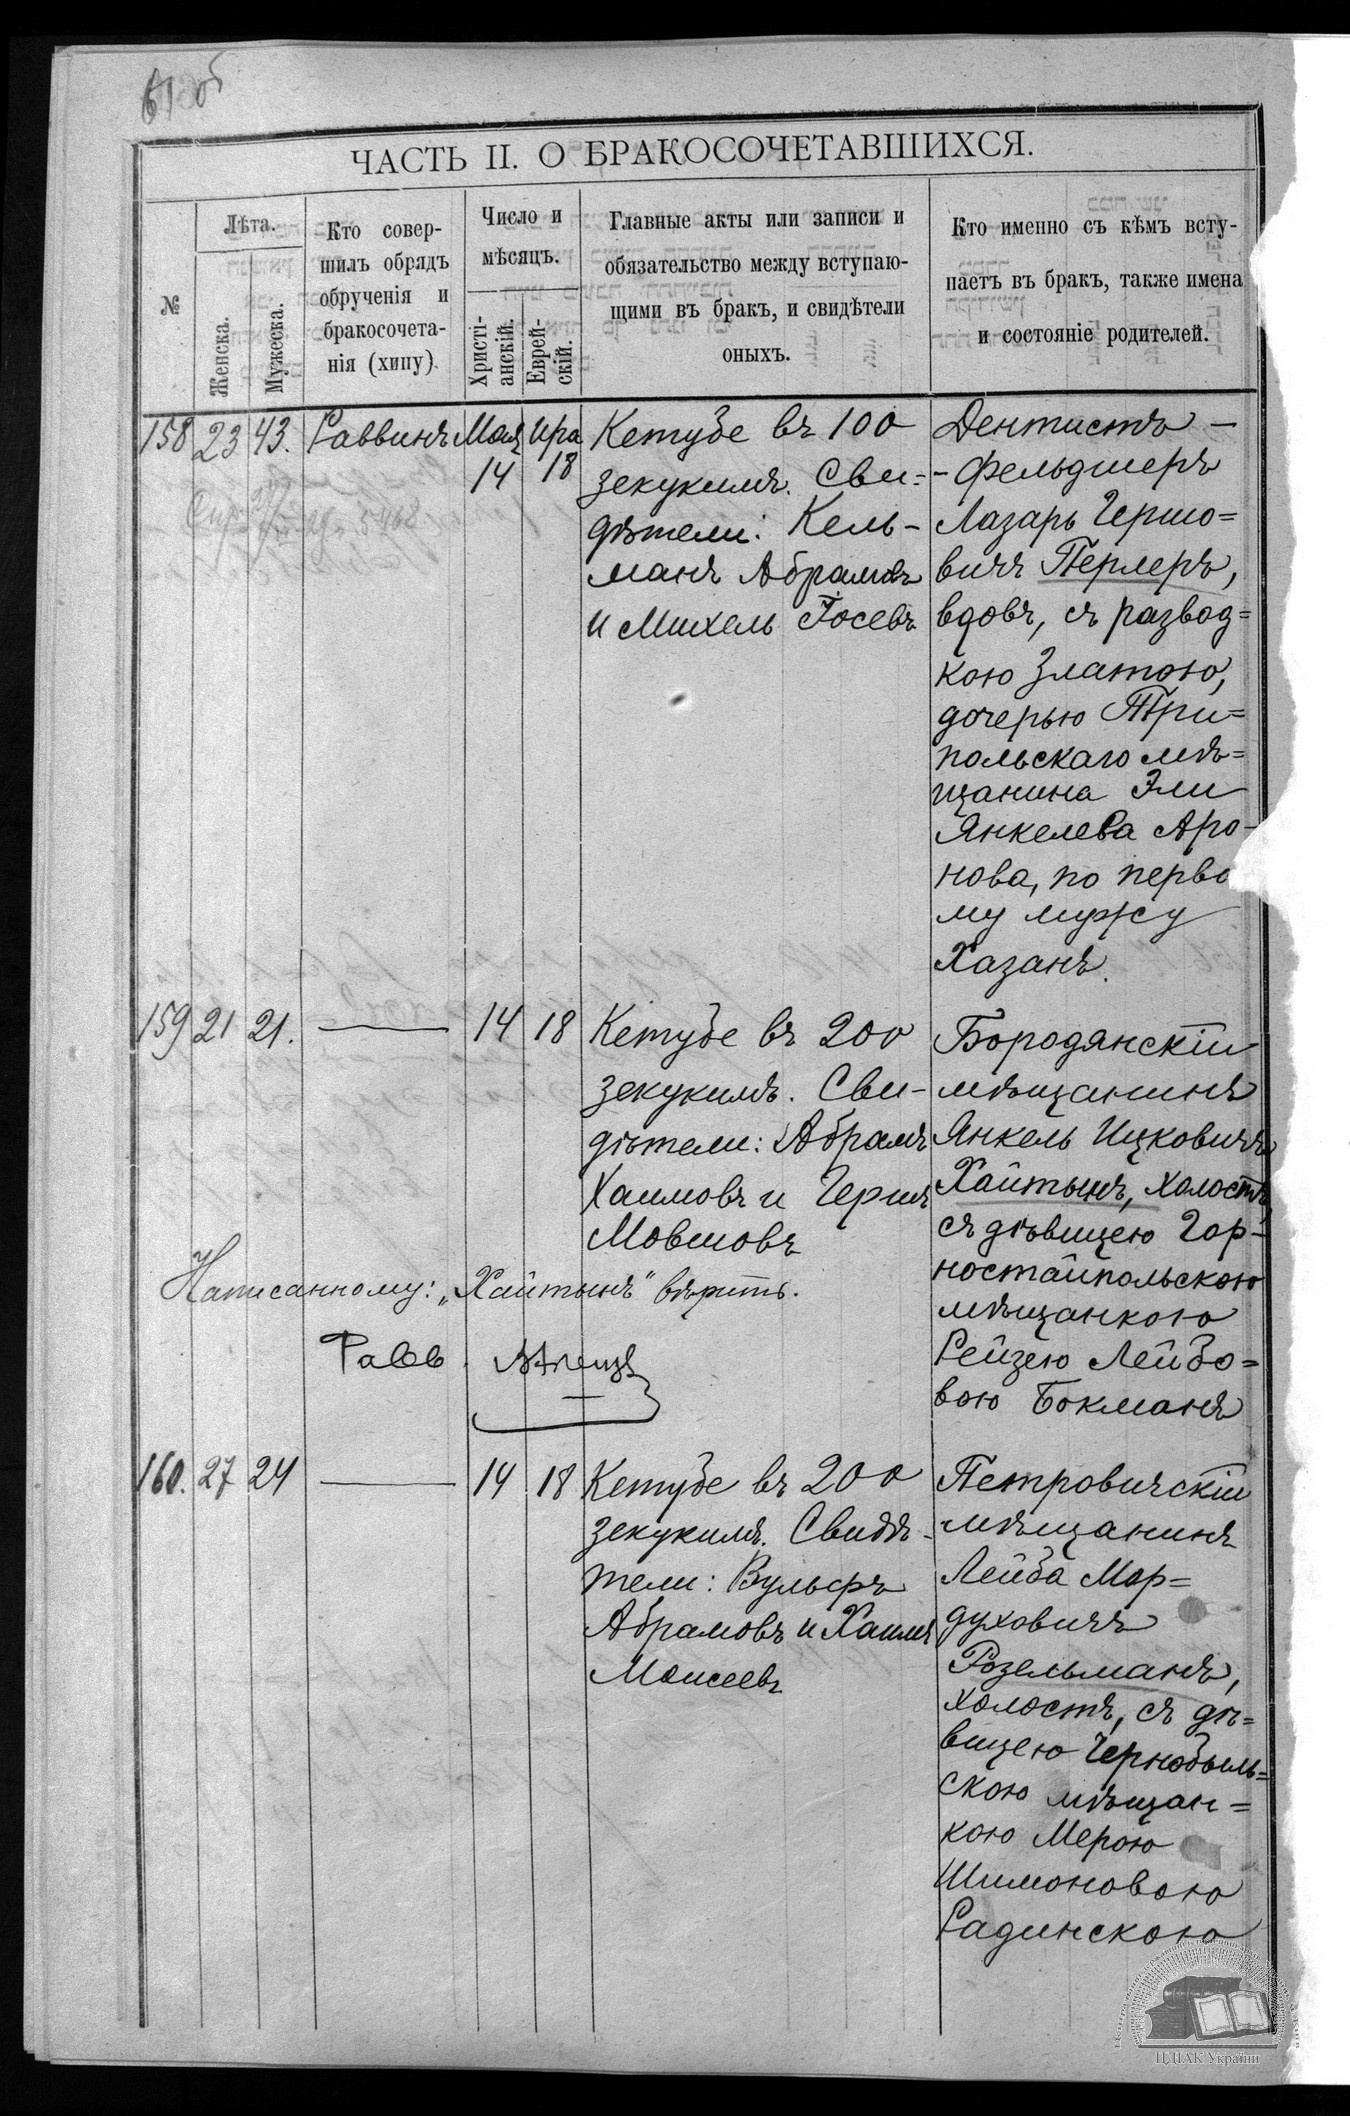 61 об
ЧАСТЬ II. О БРАКОСОЧЕТАВШИХСЯ.
№
Лѣта.
Женска.
Мужеска.
Кто совер-
шилъ обрядъ
обрученія и
бракосочета-
нія (хипу)
Число и
мѣсяцъ.
Христі-
анскій.
Еврей-
скій.
Главные акты или записи и
обязательство между вступаю-
щими въ бракъ, и свидѣтели
оныхъ.
Кто именно съ кѣмъ всту-
паетъ въ бракъ, также имена
и состояніе родителей.
158 23 43. Раввинъ Мая 14 Ира 18
Кетубе въ 100
зекукимъ. Сви=
дѣтели: Кель-
манъ Абрамовъ
и Михель Іосевъ
Дентистъ -
- фельдшеръ
Лазарь Гершо=
вичъ Перлеръ,
вдовъ, съ развод=
кою Златою,
дочерью Три=
польскаго мѣ=
щанина Эли
Янкелева Аро-
нова, по перво
му мужу
Хазанъ.
159 21 21. — 14 18
Кетубе въ 200
зекукимъ. Сви-
дѣтели: Абрамъ
Хаимовъ и Гершъ
Мовшовъ
Бородянскій
мѣщанинъ
Янкель Ицковичъ
Хайтынъ, холостъ,
съ дѣвицею Гор-
ностайпольскою
мѣщанкою
Рейзею Лейбо=
вою Бокманъ
Написанному: „Хайтынъ" вѣрить.
Равв.
160. 27 24 — 14 18
Кетубе въ 200
зекукимъ. Свидѣ-
тели: Вульфъ
Абрамовъ и Хаимъ
Моисеевъ
Петровичскій
мѣщанинъ
Лейба Мор=
духовичъ
Розельманъ,
холостъ, съ дѣ=
вицею Чернобыль=
скою мѣщан=
кою Мерою
Шимоновою
Радинскою
ЦДІАК України